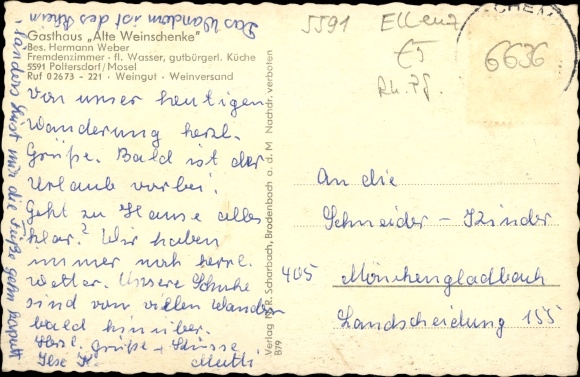 Das Wandern ist des Rhein-
länders Lust nur die Füße gehn kaputt
Gasthaus „Alte Weinschenke"
Bes. Hermann Weber
Fremdenzimmer · fl. Wasser, gutbürgerl. Küche
5591 Poltersdorf/Mosel
Ruf 0 2673 - 221 · Weingut · Weinversand
Von unser heutigen
Wanderung herzl.
Grüße. Bald ist der
Urlaub vorbei.
Geht zu Hause alles
klar? Wir haben
immer noch herrl.
Wetter. Unsere Schuhe
sind vom vielen Wandern
bald hinüber.
Herzl. Grüße + Küsse
Ilse K. Mutti
Verlag N. R. Scharbach, Brodenbach a. d. M Nachdr. verboten
B79
5591 Ellenz
€5
Rh. Pf.
6636
CHEM
An die
Schneider - Kinder
405 Mönchengladbach
Landscheidung 155